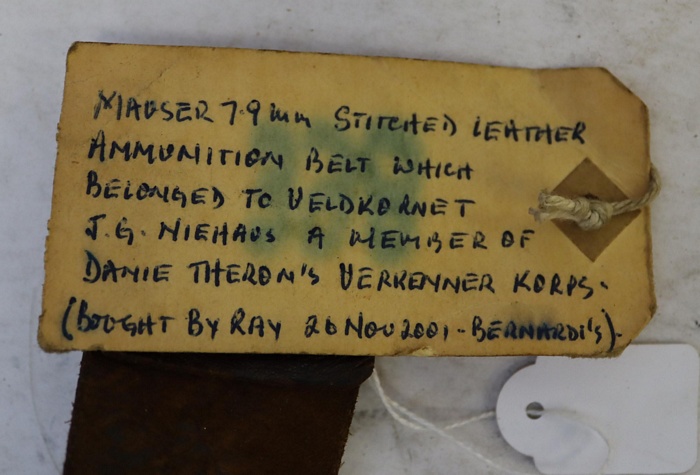 MAUSER 7.9mm STITCHED LEATHER
AMMUNITION BELT WHICH
BELONGED TO VELDKORNET
J.G. NIEHAUS A MEMBER OF
DANIE THERON'S VERKENNER KORPS.
(BOUGHT BY RAY 20 NOV 2001 - BERNARDI'S).